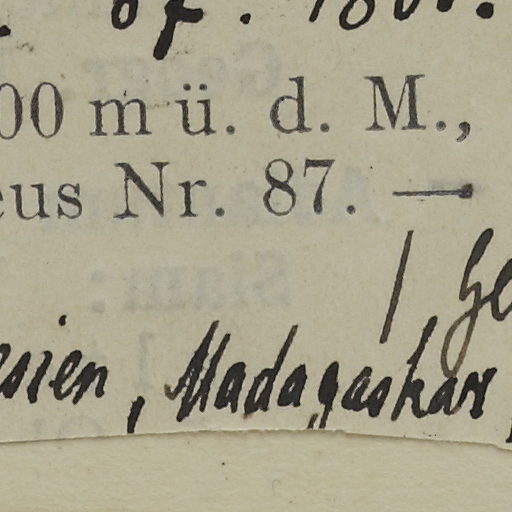 00 m ü. d. M.,
eus Nr. 87. —
/ Ge
esien, Madagaskar